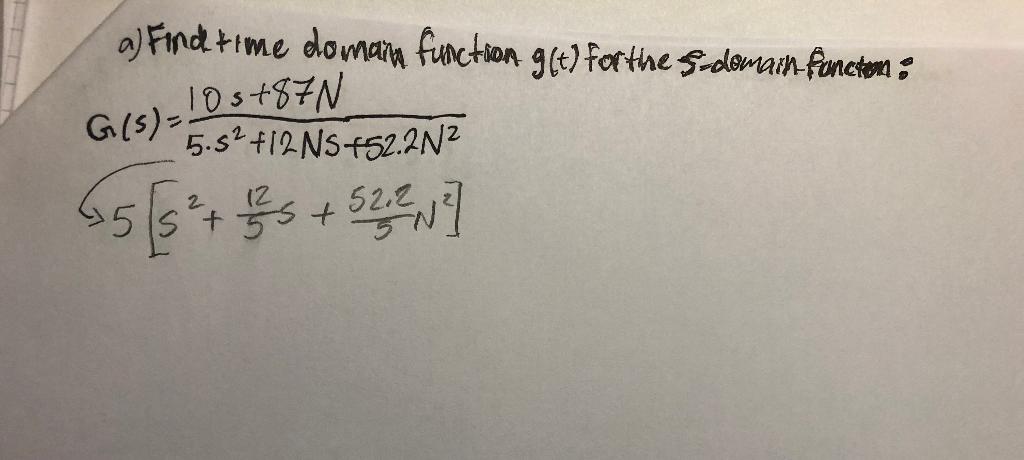 a) Find time domain function g(t) for the s-domain function:
G(s) = 10s+87N / 5·s²+12NS+52.2N²
5[s² + 12/5 s + 52.2/5 N²]